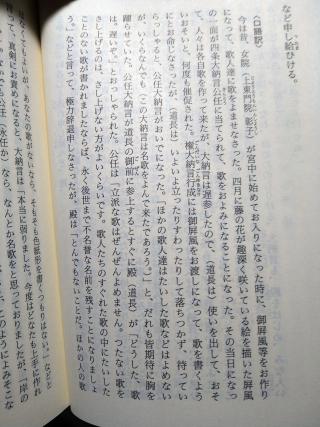 など申し給ひける。
〈口語訳〉
今は前女院（上東門院・彰子）が宮中に始めてお入りになった時に、御屏風等をお作り
になって、歌人達に歌をよませなさった。四月に藤の花が趣深く咲いている絵を描いた屏風
の一面が四条大納言公任に当てられて、歌をおよみになることになった。その当日になっ
て、人々は各自歌を作って来たが、大納言は遅参したので、（道長は）使いを出して、おそ
いおそいと、何度も催促された。権大納言行成には御屏風をお渡しになって、歌を書くよう
にとお命じなさったが、（道長は）いよいよ立ったりすわったりして落ちつかず、待ってい
らっしゃると、公任大納言がおいでになった。「ほかの歌人達はたいした歌などはよめない
のに、いくらなんでもこの大納言は名歌をよんで来たであろう。」と、だれも皆期待に胸を
躍らせていた。公任大納言が道長の御前に参上するとすぐに殿（道長）が「どうした、歌
は。遅いぞ。」とおっしゃられた。公任は「立派な歌はぜんぜんよめません。つたない歌を
さし上げるのは、さし上げない方がよいくらいです。歌人たちのすぐれた歌の中にたいした
ことのない歌が書かれましたならば、永く後世まで不名誉な名前を残すことになりましょ
う。」などと言って、極力辞退申しなさったが、殿は「とんでもないことだ。ほかの人の歌
なくてもよいが、あなたの歌がないなら、そもそも色紙形を書くつもりはない。」などと
真剣にお責めになると、大納言は「本当に困りました。今度はどなたも上手に作れ
公任（永任か）なら、なんとか名歌をと思っておりましたが、「岸の
このようによみそこな